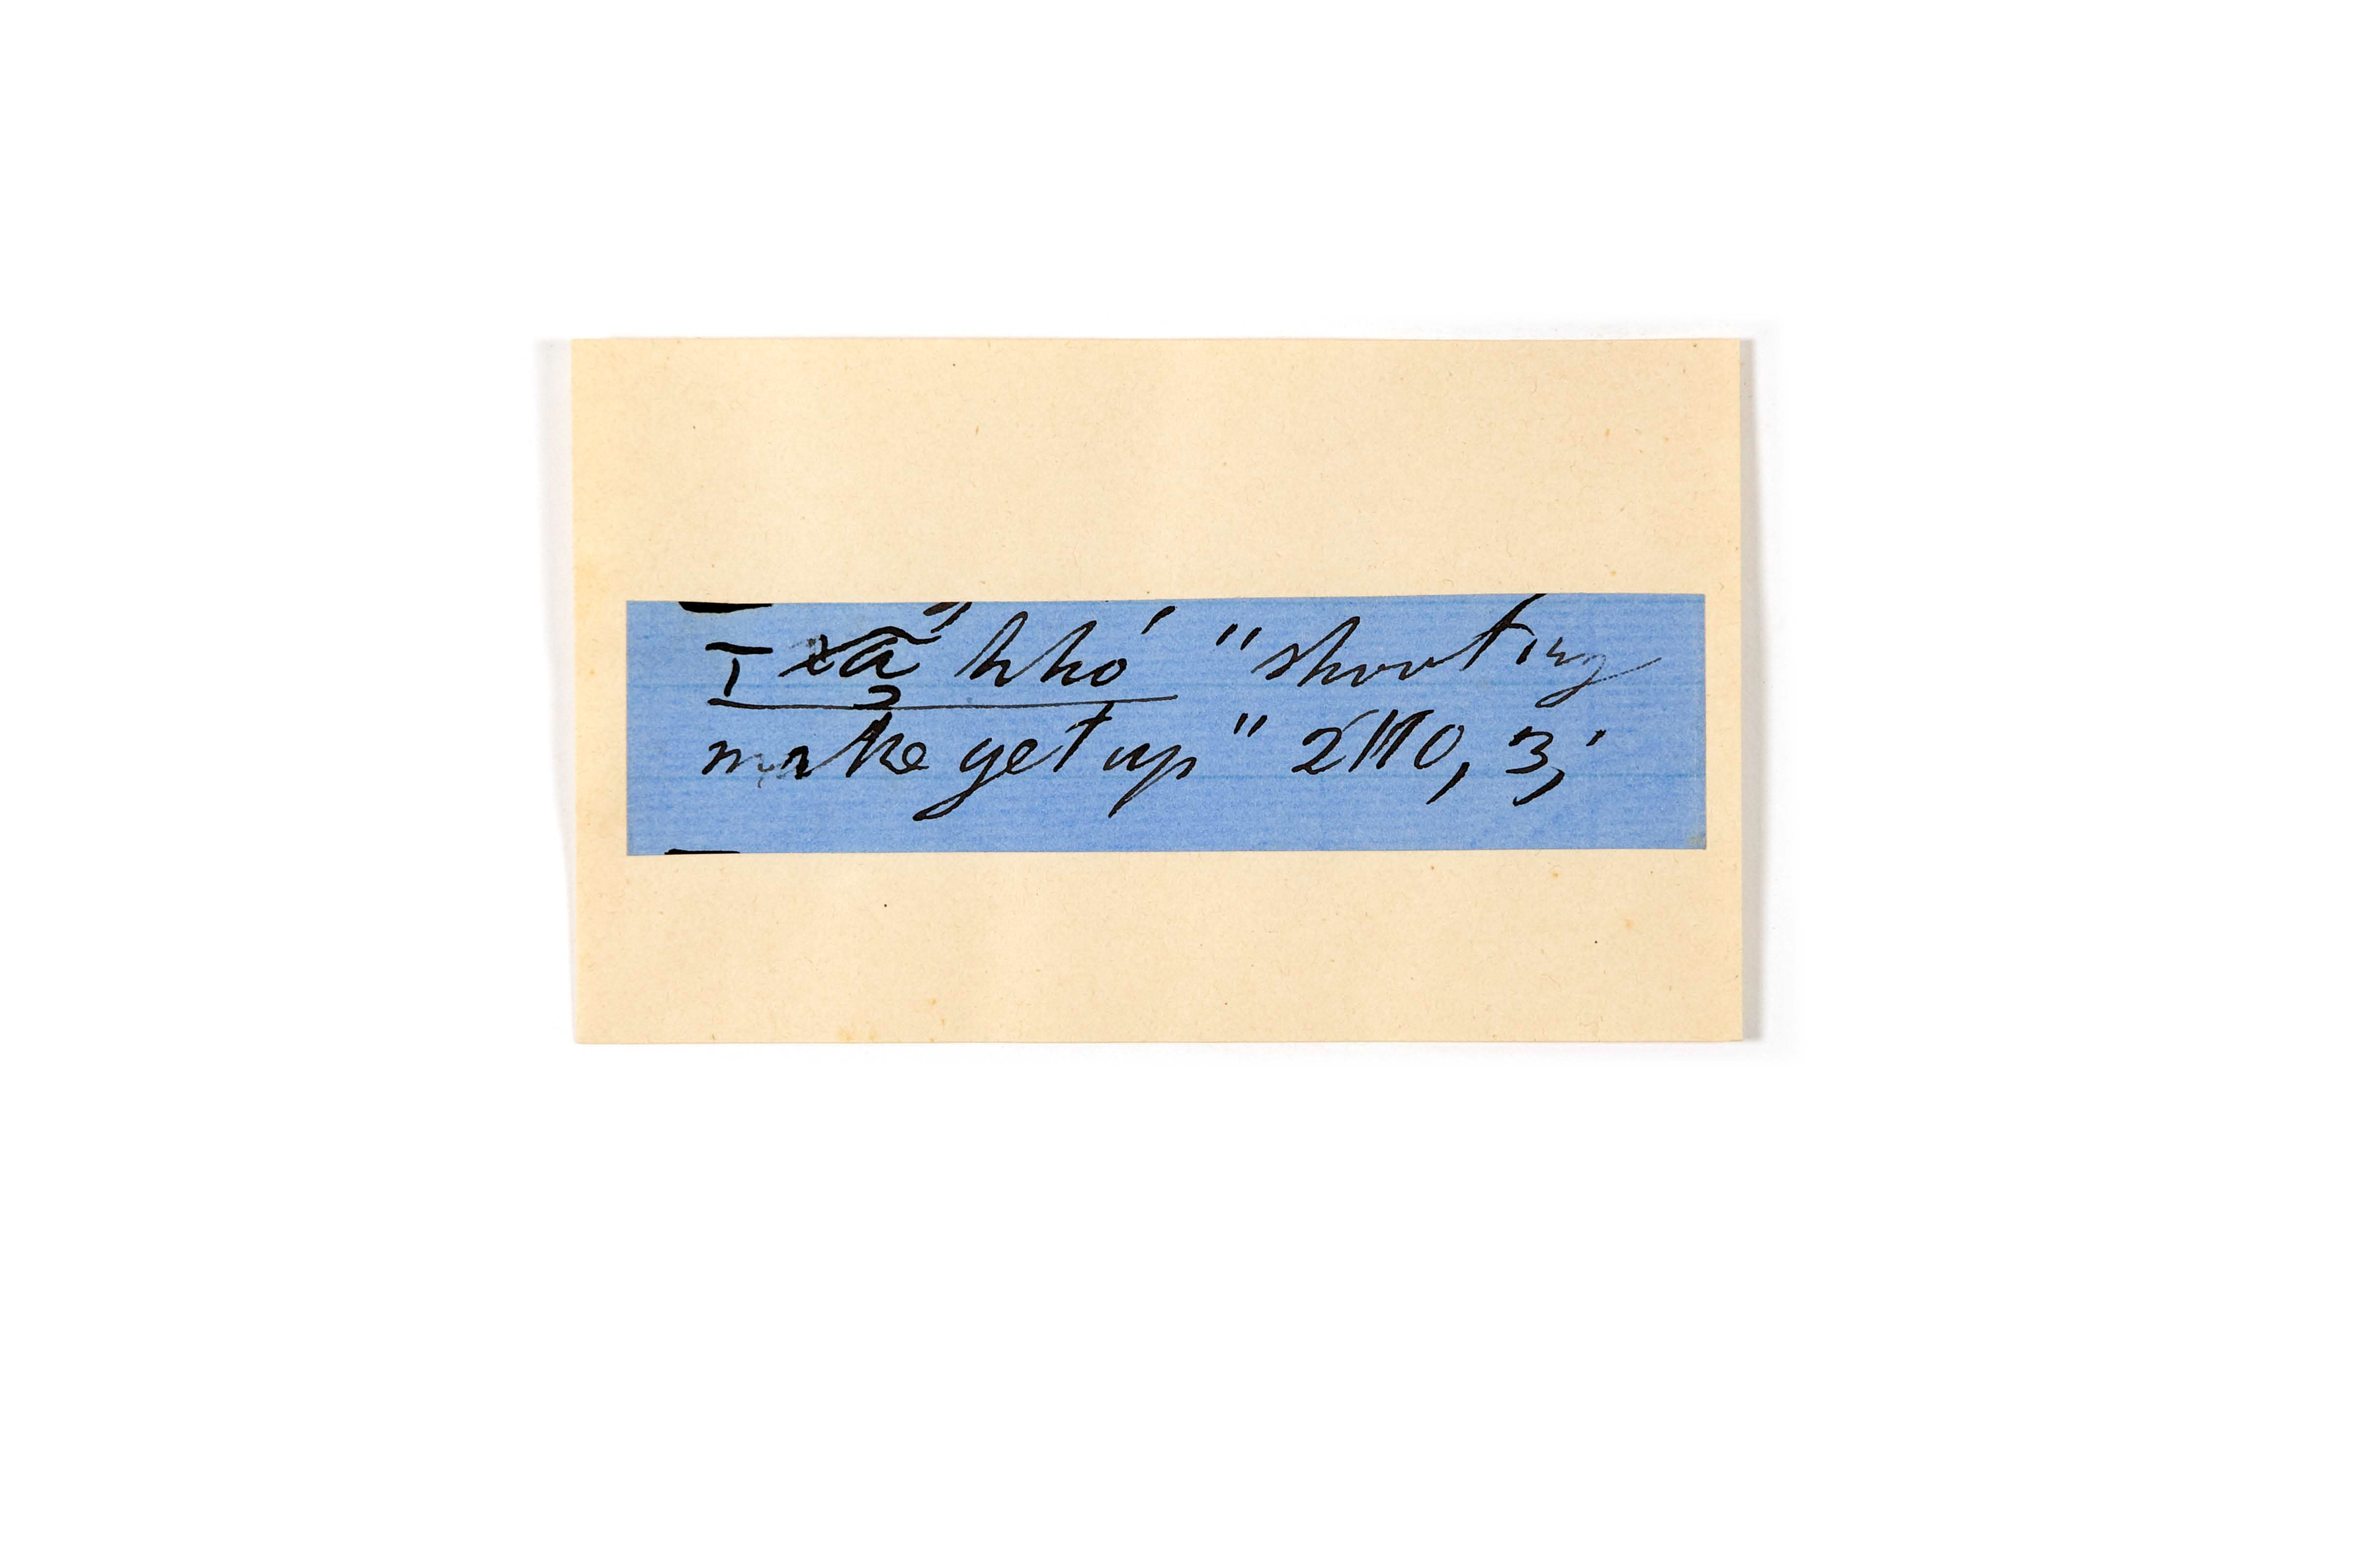 ⊤ xã̰́ hhó "shouting
make get up" 2110, 3,'